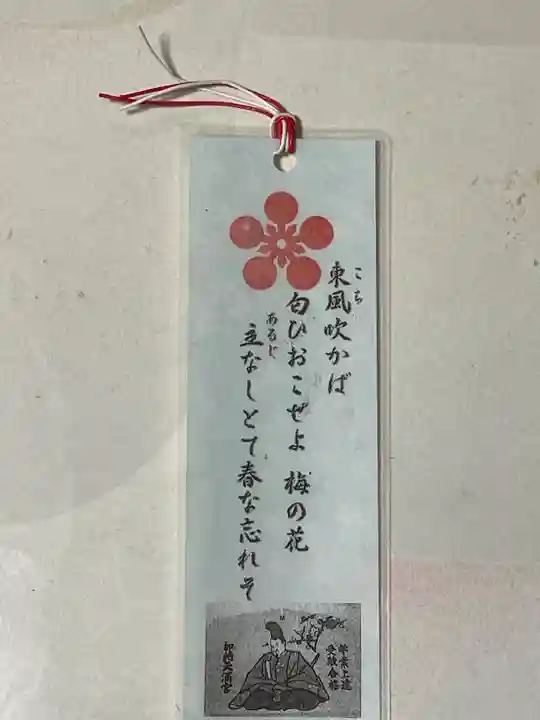 東風吹かば
こち
匂ひおこせよ 梅の花
主なしとて春な忘れそ
あるじ
学業上達
受験合格
和歌天満宮